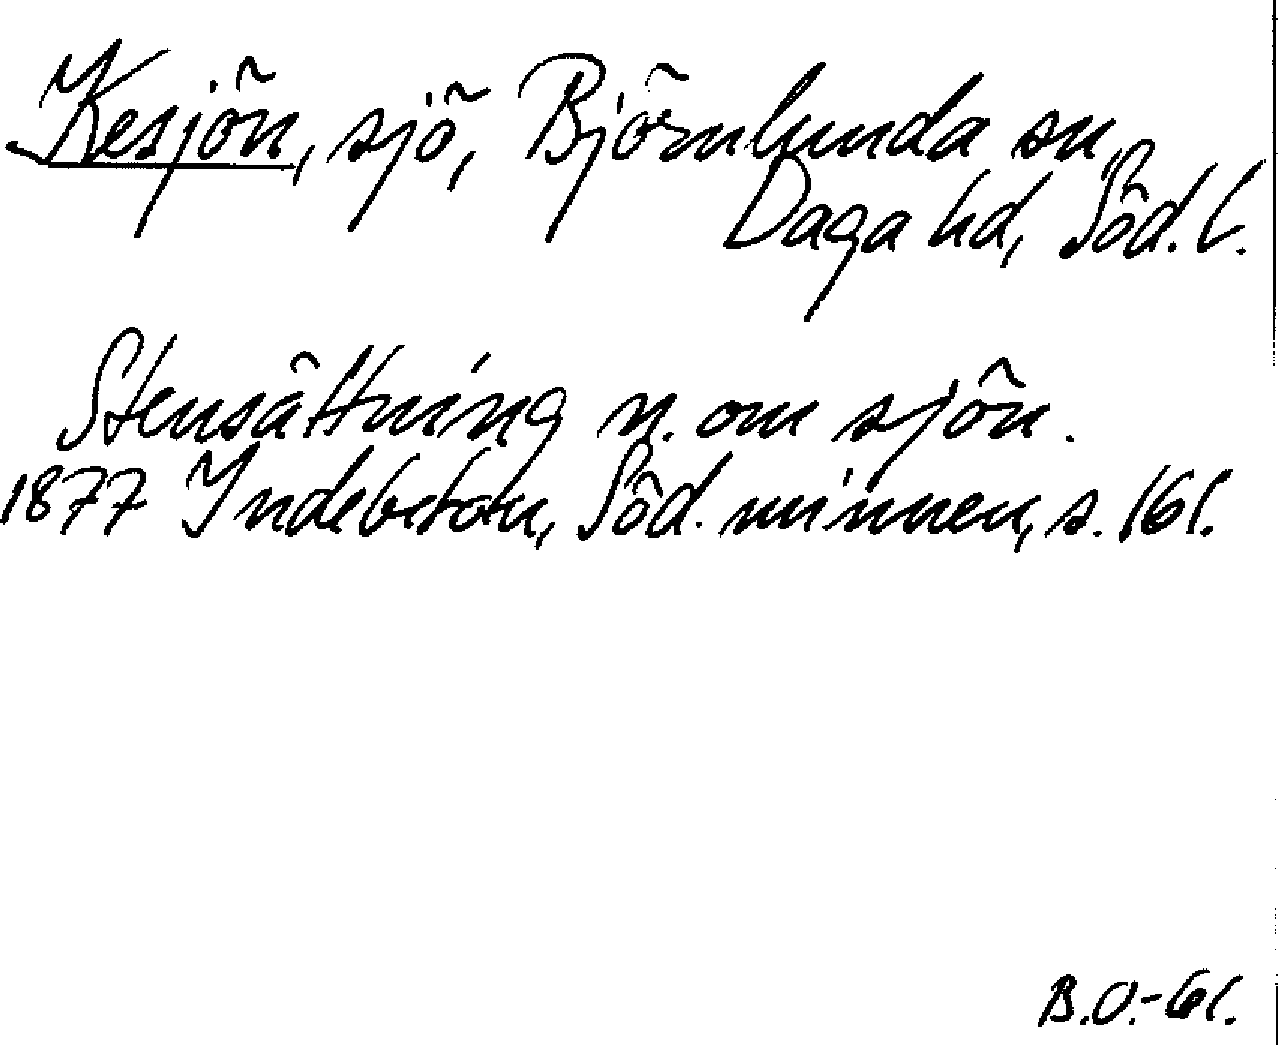 Kesjön, sjö, Björnlunda sn,
Daga hd, Söd. l.
Stensättning n. om sjön.
1877 Indebetou, Söd. minnen, s. 161.
B.O.-61.